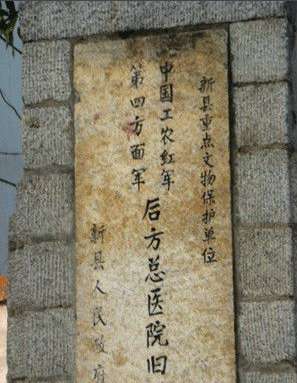 新县重点文物保护单位
中国工农红军
第四方面军
后方总医院旧
新县人民政府